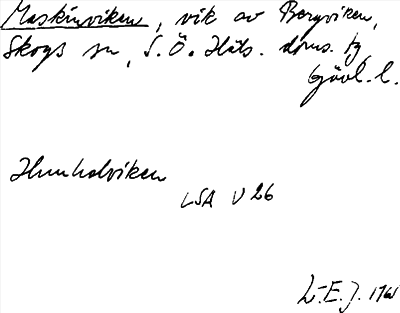 Maskinviken, vik av Bergviken,
Skogs sn, S.Ö. Häls. doms. tg
Gävl. l.
Humhalviken
LSA V 26
L-E. J. 1961